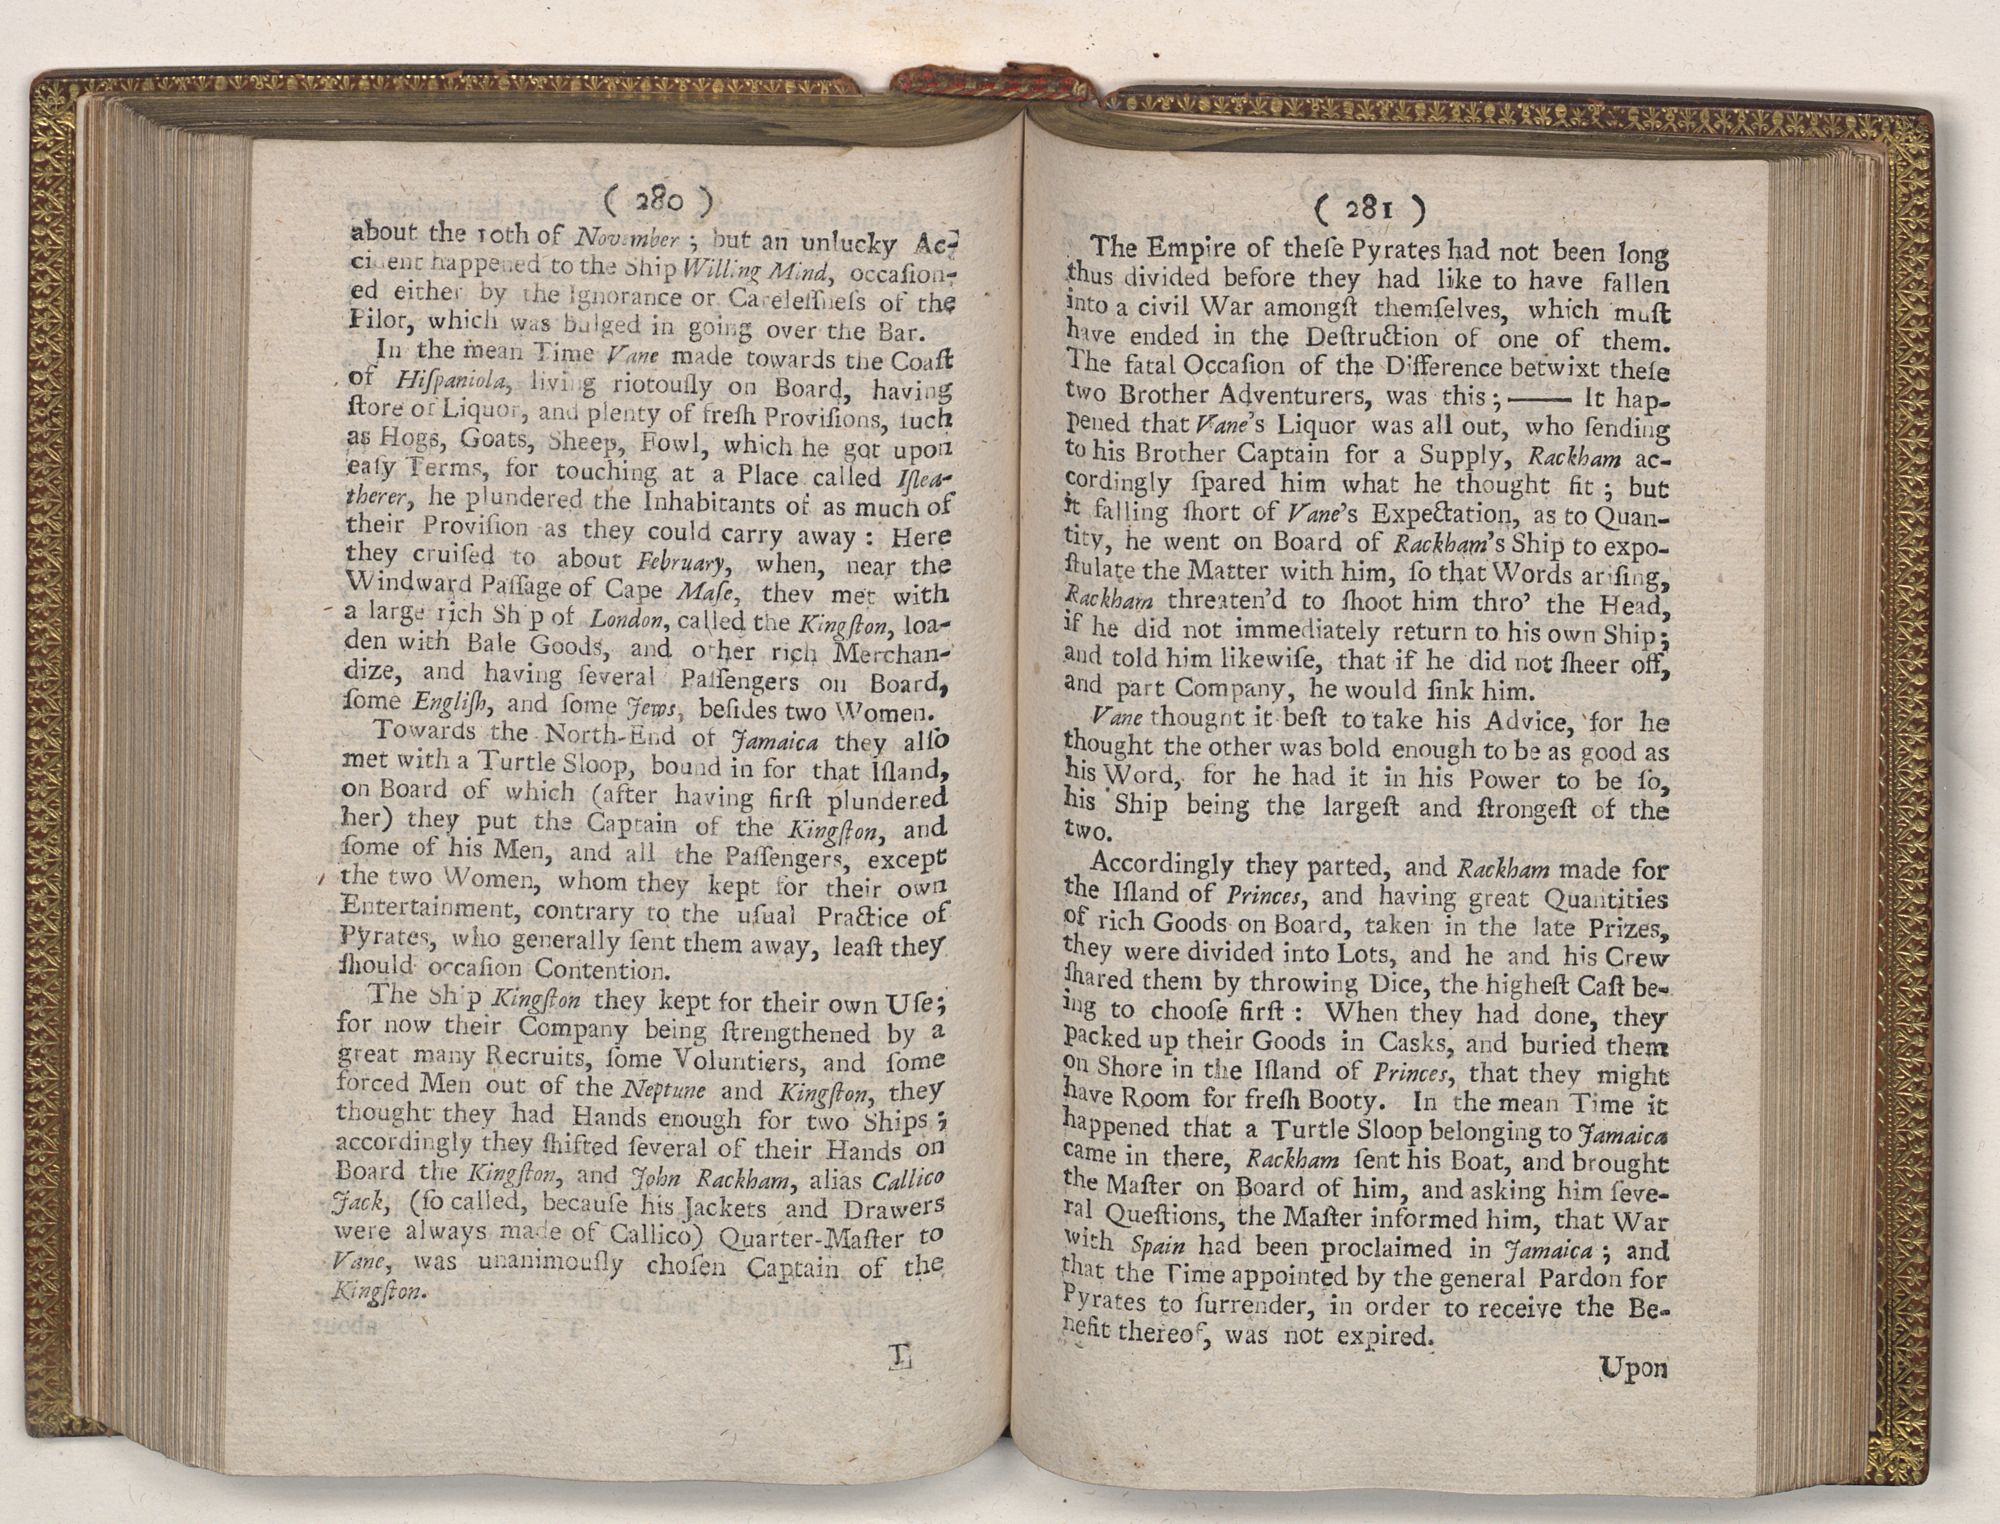 ( 280 )
about the 10th of November ; but an unlucky Ac-
cident happened to the Ship Willing Mind, occaſion-
ed either by the Ignorance or Careleſſneſs of the
Pilot, which was bulged in going over the Bar.
In the mean Time Vane made towards the Coaſt
of Hiſpaniola, living riotouſly on Board, having
ſtore of Liquor, and plenty of freſh Proviſions, ſuch
as Hogs, Goats, Sheep, Fowl, which he got upon
eaſy Terms, for touching at a Place called Iſlea-
therer, he plundered the Inhabitants of as much of
their Proviſion as they could carry away : Here
they cruiſed to about February, when, near the
Windward Paſſage of Cape Maſe, they met with
a large rich Ship of London, called the Kingſton, loa-
den with Bale Goods, and other rich Merchan-
dize, and having ſeveral Paſſengers on Board,
ſome Engliſh, and ſome Jews, beſides two Women.
Towards the North-End of Jamaica they alſo
met with a Turtle Sloop, bound in for that Iſland,
on Board of which (after having firſt plundered
her) they put the Captain of the Kingſton, and
ſome of his Men, and all the Paſſengers, except
the two Women, whom they kept for their own
Entertainment, contrary to the uſual Practice of
Pyrates, who generally ſent them away, leaſt they
ſhould occaſion Contention.
The Ship Kingſton they kept for their own Uſe;
for now their Company being ſtrengthened by a
great many Recruits, ſome Voluntiers, and ſome
forced Men out of the Neptune and Kingſton, they
thought they had Hands enough for two Ships ;
accordingly they ſhifted ſeveral of their Hands on
Board the Kingſton, and John Rackham, alias Callico
Jack, (ſo called, becauſe his Jackets and Drawers
were always made of Callico) Quarter-Maſter to
Vane, was unanimouſly choſen Captain of the
Kingſton.
( 281 )
The Empire of theſe Pyrates had not been long
thus divided before they had like to have fallen
into a civil War amongſt themſelves, which muſt
have ended in the Deſtruction of one of them.
The fatal Occaſion of the Difference betwixt theſe
two Brother Adventurers, was this ;—— It hap-
pened that Vane's Liquor was all out, who ſending
to his Brother Captain for a Supply, Rackham ac-
cordingly ſpared him what he thought fit ; but
it falling ſhort of Vane's Expectation, as to Quan-
tity, he went on Board of Rackham's Ship to expo-
ſtulate the Matter with him, ſo that Words ariſing,
Rackham threaten'd to ſhoot him thro' the Head,
if he did not immediately return to his own Ship;
and told him likewiſe, that if he did not ſheer off,
and part Company, he would ſink him.
Vane thought it beſt to take his Advice, for he
thought the other was bold enough to be as good as
his Word, for he had it in his Power to be ſo,
his Ship being the largeſt and ſtrongeſt of the
two.
Accordingly they parted, and Rackham made for
the Iſland of Princes, and having great Quantities
of rich Goods on Board, taken in the late Prizes,
they were divided into Lots, and he and his Crew
ſhared them by throwing Dice, the higheſt Caſt be-
ing to chooſe firſt : When they had done, they
packed up their Goods in Casks, and buried them
on Shore in the Iſland of Princes, that they might
have Room for freſh Booty. In the mean Time it
happened that a Turtle Sloop belonging to Jamaica
came in there, Rackham ſent his Boat, and brought
the Maſter on Board of him, and asking him ſeve-
ral Queſtions, the Maſter informed him, that War
with Spain had been proclaimed in Jamaica ; and
that the Time appointed by the general Pardon for
Pyrates to ſurrender, in order to receive the Be-
nefit thereof, was not expired.
Upon